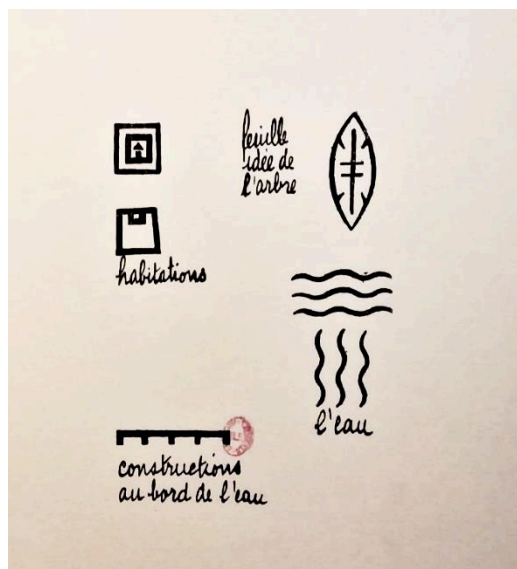 feuille
idée de
l'arbre
habitations
l'eau
constructions
au bord de l'eau